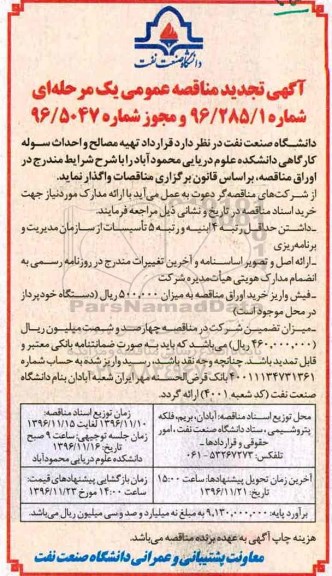 دانشگاه صنعت نفت
آگهی تجدید مناقصه عمومی یک مرحله‌ای
شماره ۹۶/۲۸۵/۱ و مجوز شماره ۹۶/۵۰۴۷
دانشگاه صنعت نفت در نظر دارد قرارداد تهیه مصالح و احداث سوله
کارگاهی دانشکده علوم دریایی محمودآباد را با شرح شرایط مندرج در
اوراق مناقصه، براساس قانون برگزاری مناقصات واگذار نماید.
از شرکت‌های مناقصه‌گر دعوت به عمل می‌آید با ارائه مدارک مورد نیاز جهت
خرید اسناد مناقصه در تاریخ و نشانی ذیل مراجعه فرمایند.
-داشتن حداقل رتبه ۴ ابنیه و رتبه ۵ تأسیسات از سازمان مدیریت و
برنامه‌ریزی
-ارائه اصل و تصویر اساسنامه و آخرین تغییرات مندرج در روزنامه رسمی به
انضمام مدارک هویتی هیأت‌مدیره شرکت
-فیش واریز خرید اوراق مناقصه به میزان ۵۰۰,۰۰۰ ریال (دستگاه خودپرداز
در محل موجود است)
-میزان تضمین شرکت در مناقصه چهارصد و شصت میلیون ریال
(۴۶۰,۰۰۰,۰۰۰ ریال) می‌باشد که باید به صورت ضمانتنامه بانکی معتبر و
قابل تمدید باشد. چنانچه وجه نقد باشد، رسید واریز شده به حساب شماره
۴۰۰۱۱۱۳۴۷۳۱۳۶۱ بانک قرض‌الحسنه مهر ایران شعبه آبادان بنام دانشگاه
صنعت نفت (کد شعبه ۴۰۰۱) ارائه گردد.
محل توزیع اسناد مناقصه: آبادان، بریم، فلکه
پتروشیمی، ستاد دانشگاه صنعت نفت، امور
حقوقی و قراردادها -
تلفکس: ۵۳۲۶۷۲۷۳-۰۶۱
زمان توزیع اسناد مناقصه:
۱۳۹۶/۱۱/۱۰ لغایت ۱۳۹۶/۱۱/۱۵
زمان جلسه توجیهی: ساعت ۹ صبح
تاریخ: ۱۳۹۶/۱۱/۱۶
دانشکده علوم دریایی محمودآباد
آخرین زمان تحویل پیشنهادها: ساعت ۱۵:۰۰
تاریخ: ۱۳۹۶/۱۱/۲۱
زمان بازگشایی پیشنهادهای قیمت:
ساعت ۱۴:۰۰ مورخ ۱۳۹۶/۱۱/۲۳
برآورد پایه: ۹,۱۳۰,۰۰۰,۰۰۰ به مبلغ نه میلیارد و صد و سی میلیون ریال می‌باشد.
هزینه چاپ آگهی به عهده برنده مناقصه می‌باشد.
معاونت پشتیبانی و عمرانی دانشگاه صنعت نفت